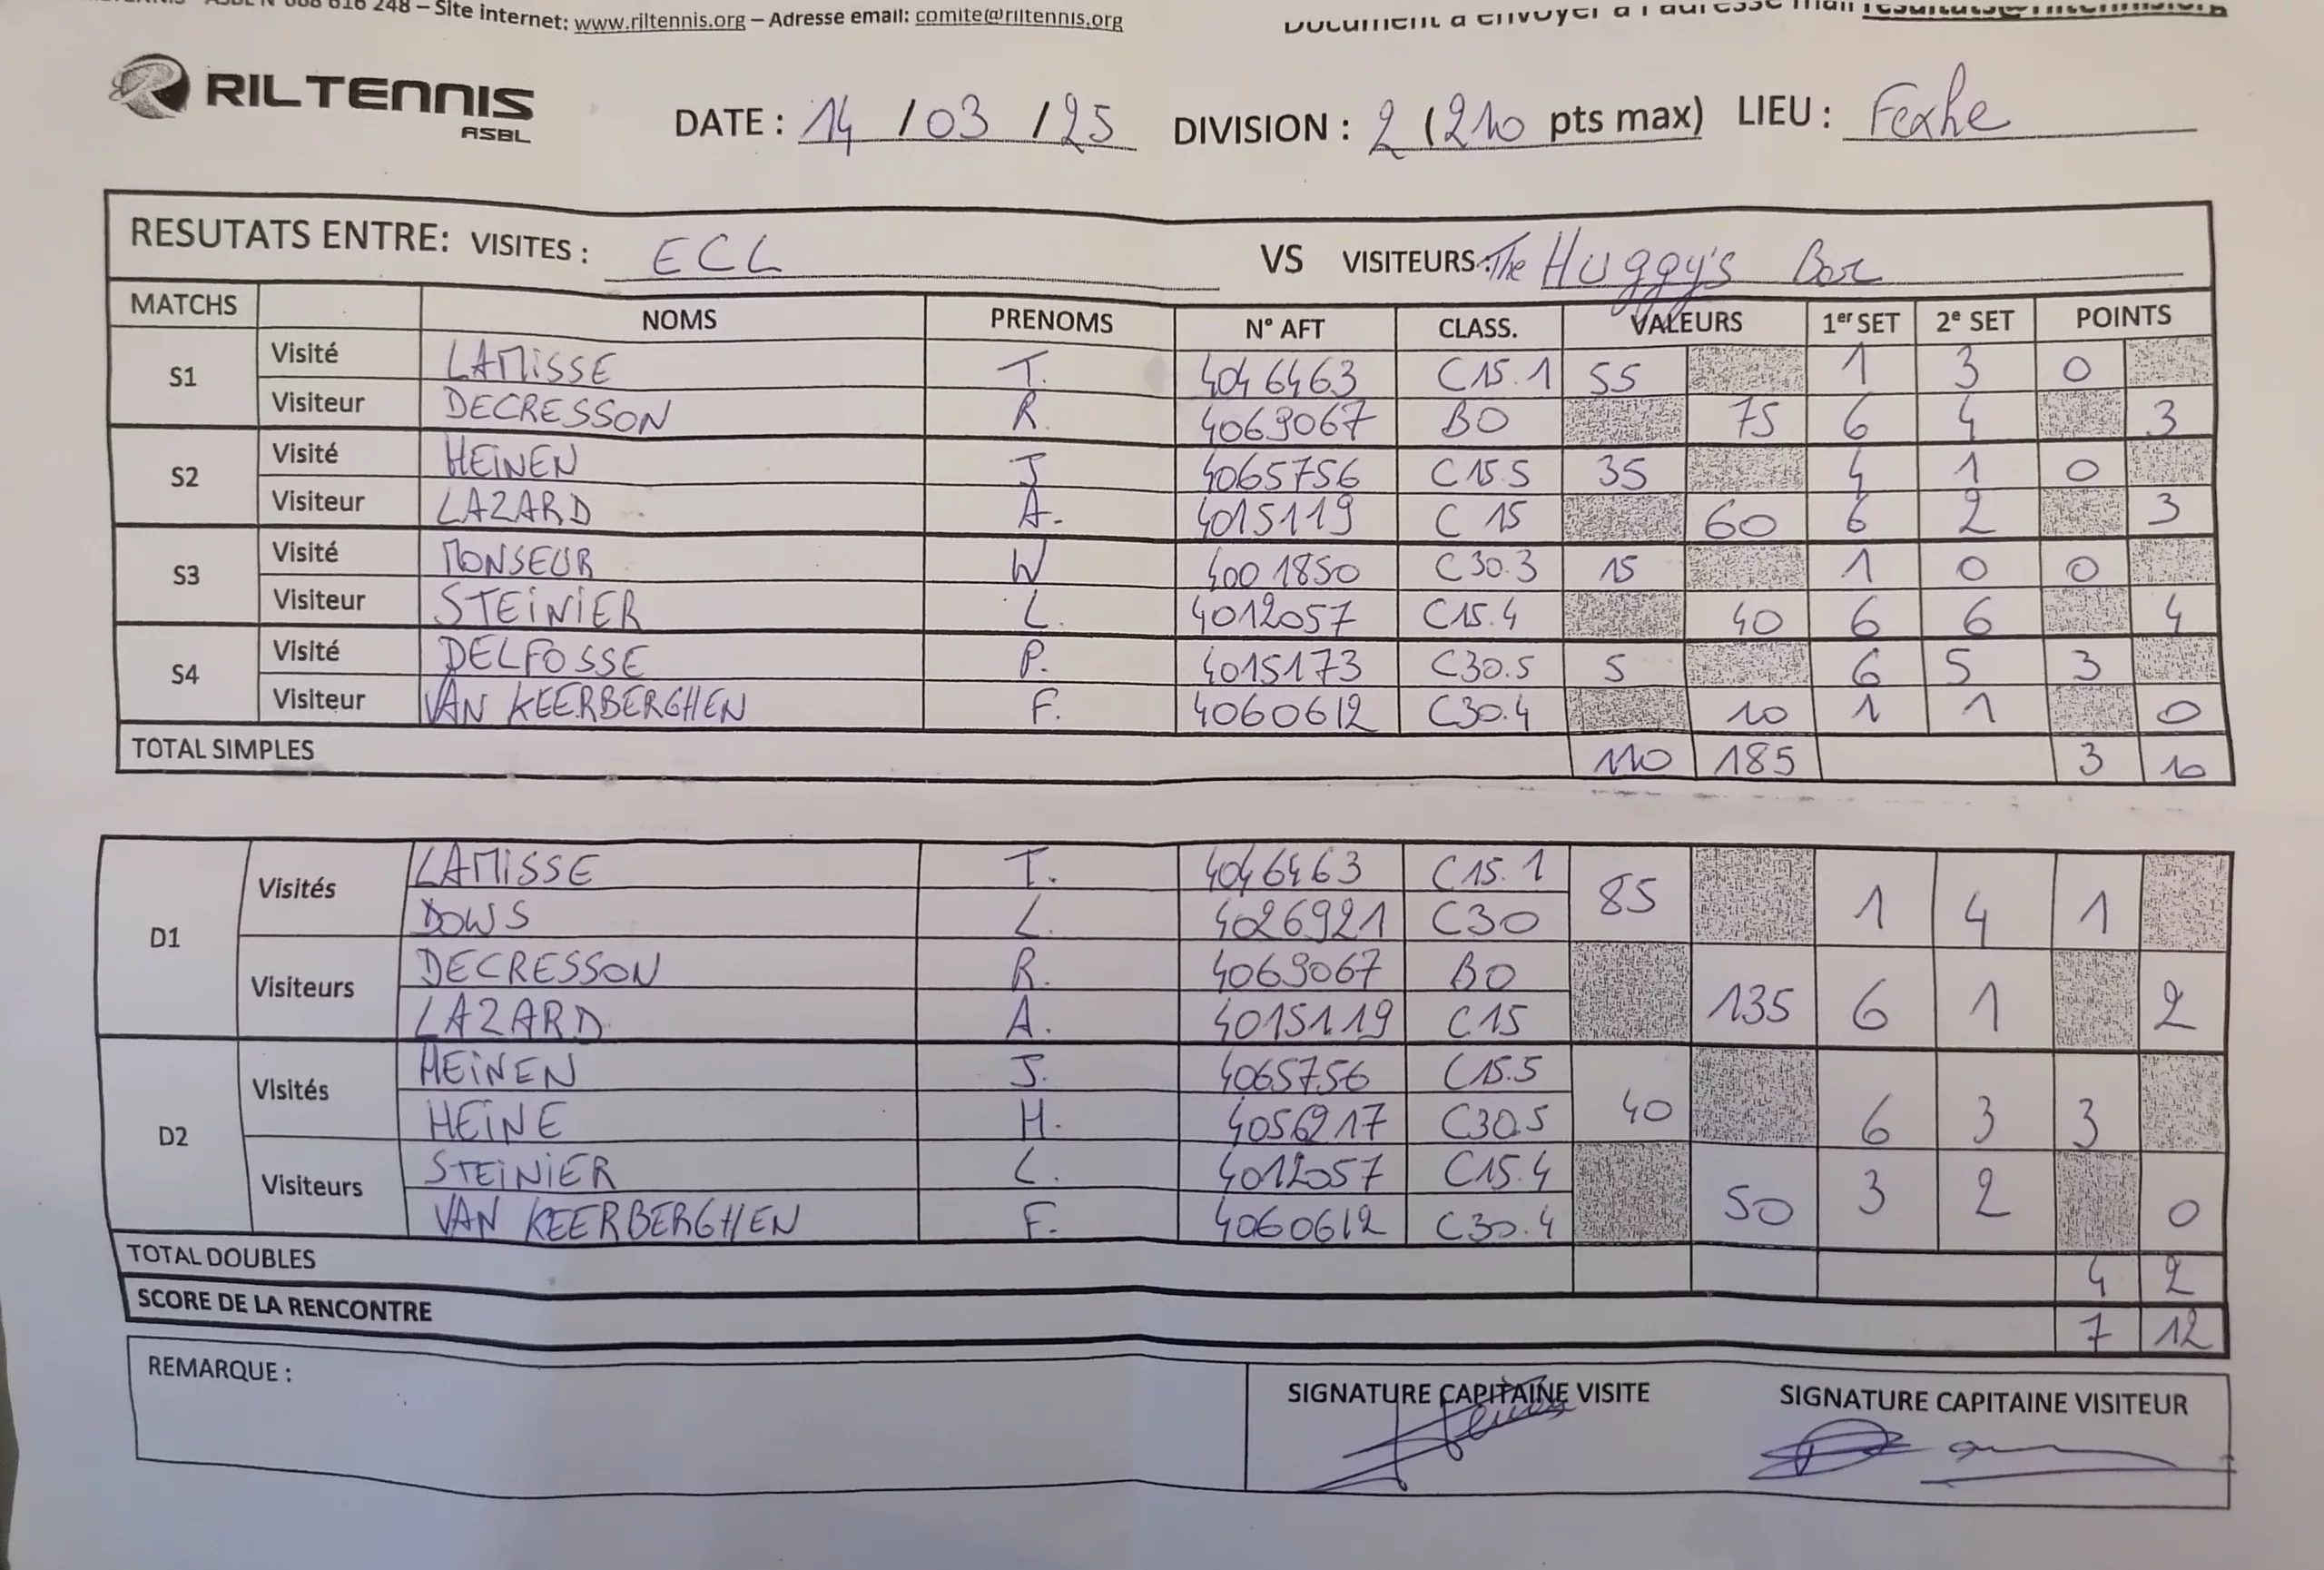 248 – Site internet: www.riltennis.org – Adresse email: comite@riltennis.org
Document à envoyer à l'adresse mail resultats@riltennis.org
RILTENNIS ASBL DATE : 14 / 03 / 25 DIVISION : 2 (210 pts max) LIEU : Fexhe
RESUTATS ENTRE: VISITES : ECL VS VISITEURS: The Huggy's Bar
MATCHS NOMS PRENOMS N° AFT CLASS. VALEURS 1er SET 2e SET POINTS
S1 Visité LAMISSE T. 4046463 C15.1 55 1 3 0
Visiteur DECRESSON R. 4069067 B0 75 6 4 3
S2 Visité HEINEN J 4065756 C15.5 35 4 1 0
Visiteur LAZARD A. 4015119 C 15 60 6 2 3
S3 Visité MONSEUR W 4001850 C30.3 15 1 0 0
Visiteur STEINIER L. 4012057 C15.4 40 6 6 4
S4 Visité DELFOSSE P. 4015173 C30.5 5 6 5 3
Visiteur VAN KEERBERGHEN F. 4060612 C30.4 10 1 1 0
TOTAL SIMPLES 110 185 3 10
D1 Visités LAMISSE T. 4046463 C15.1 85 1 4 1
DOWS L. 4026921 C30
Visiteurs DECRESSON R. 4069067 B0 135 6 1 2
LAZARD A. 4015119 C15
D2 Visités HEINEN J. 4065756 C15.5 40 6 3 3
HEINE H. 4056217 C30.5
Visiteurs STEINIER L. 4012057 C15.4 50 3 2 0
VAN KEERBERGHEN F. 4060612 C30.4
TOTAL DOUBLES 4 2
SCORE DE LA RENCONTRE 7 12
REMARQUE : SIGNATURE CAPITAINE VISITE SIGNATURE CAPITAINE VISITEUR